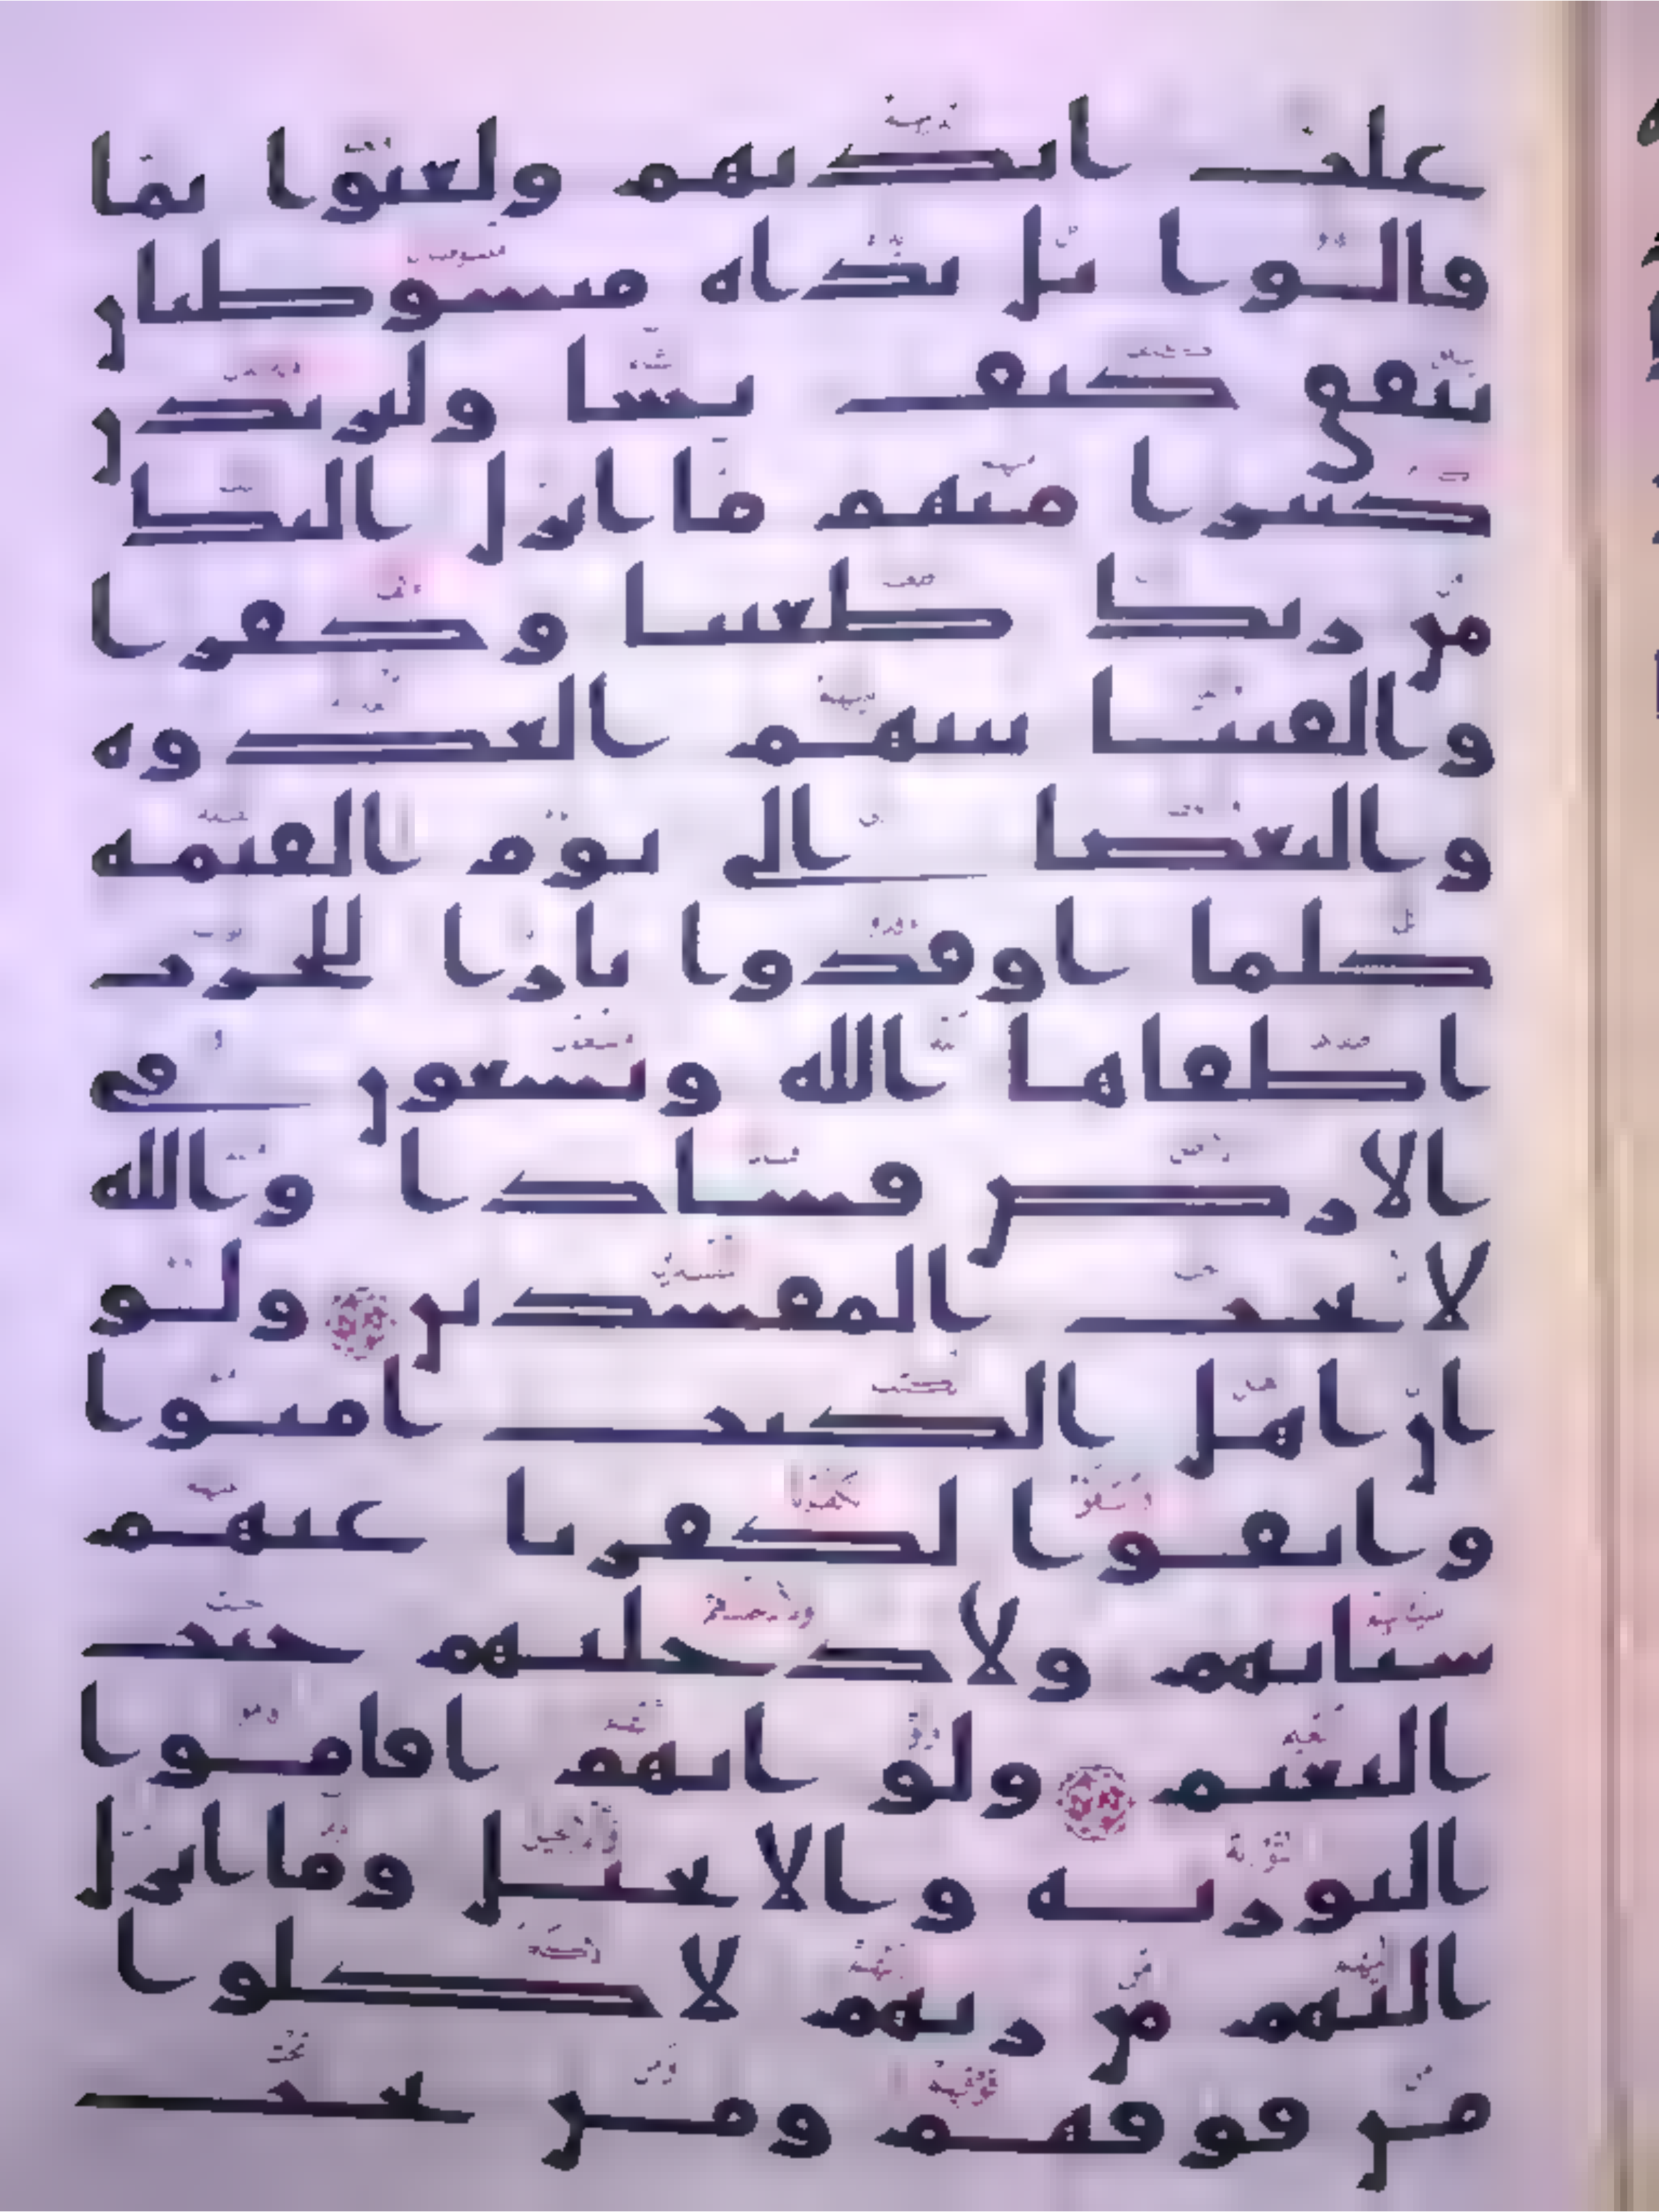 غلت ايديهم ولعنوا بما
قالوا بل يداه مبسوطتان
ينفق كيف يشا وليزيدن
كثيرا منهم ما انزل اليك
من ربك طغينا وكفرا
والقينا بينهم العدوه
والبغضا الى يوم القيمه
كلما اوقدوا نارا للحرب
اطفاها الله ويسعون في
الارض فسادا والله
لا يحب المفسدين ولو
ان اهل الكتب امنوا
واتقوا لكفرنا عنهم
سياتهم ولادخلنهم جنت
النعيم ولو انهم اقاموا
التوريه والانجيل وما انزل
اليهم من ربهم لاكلوا
من فوقهم ومن تحت